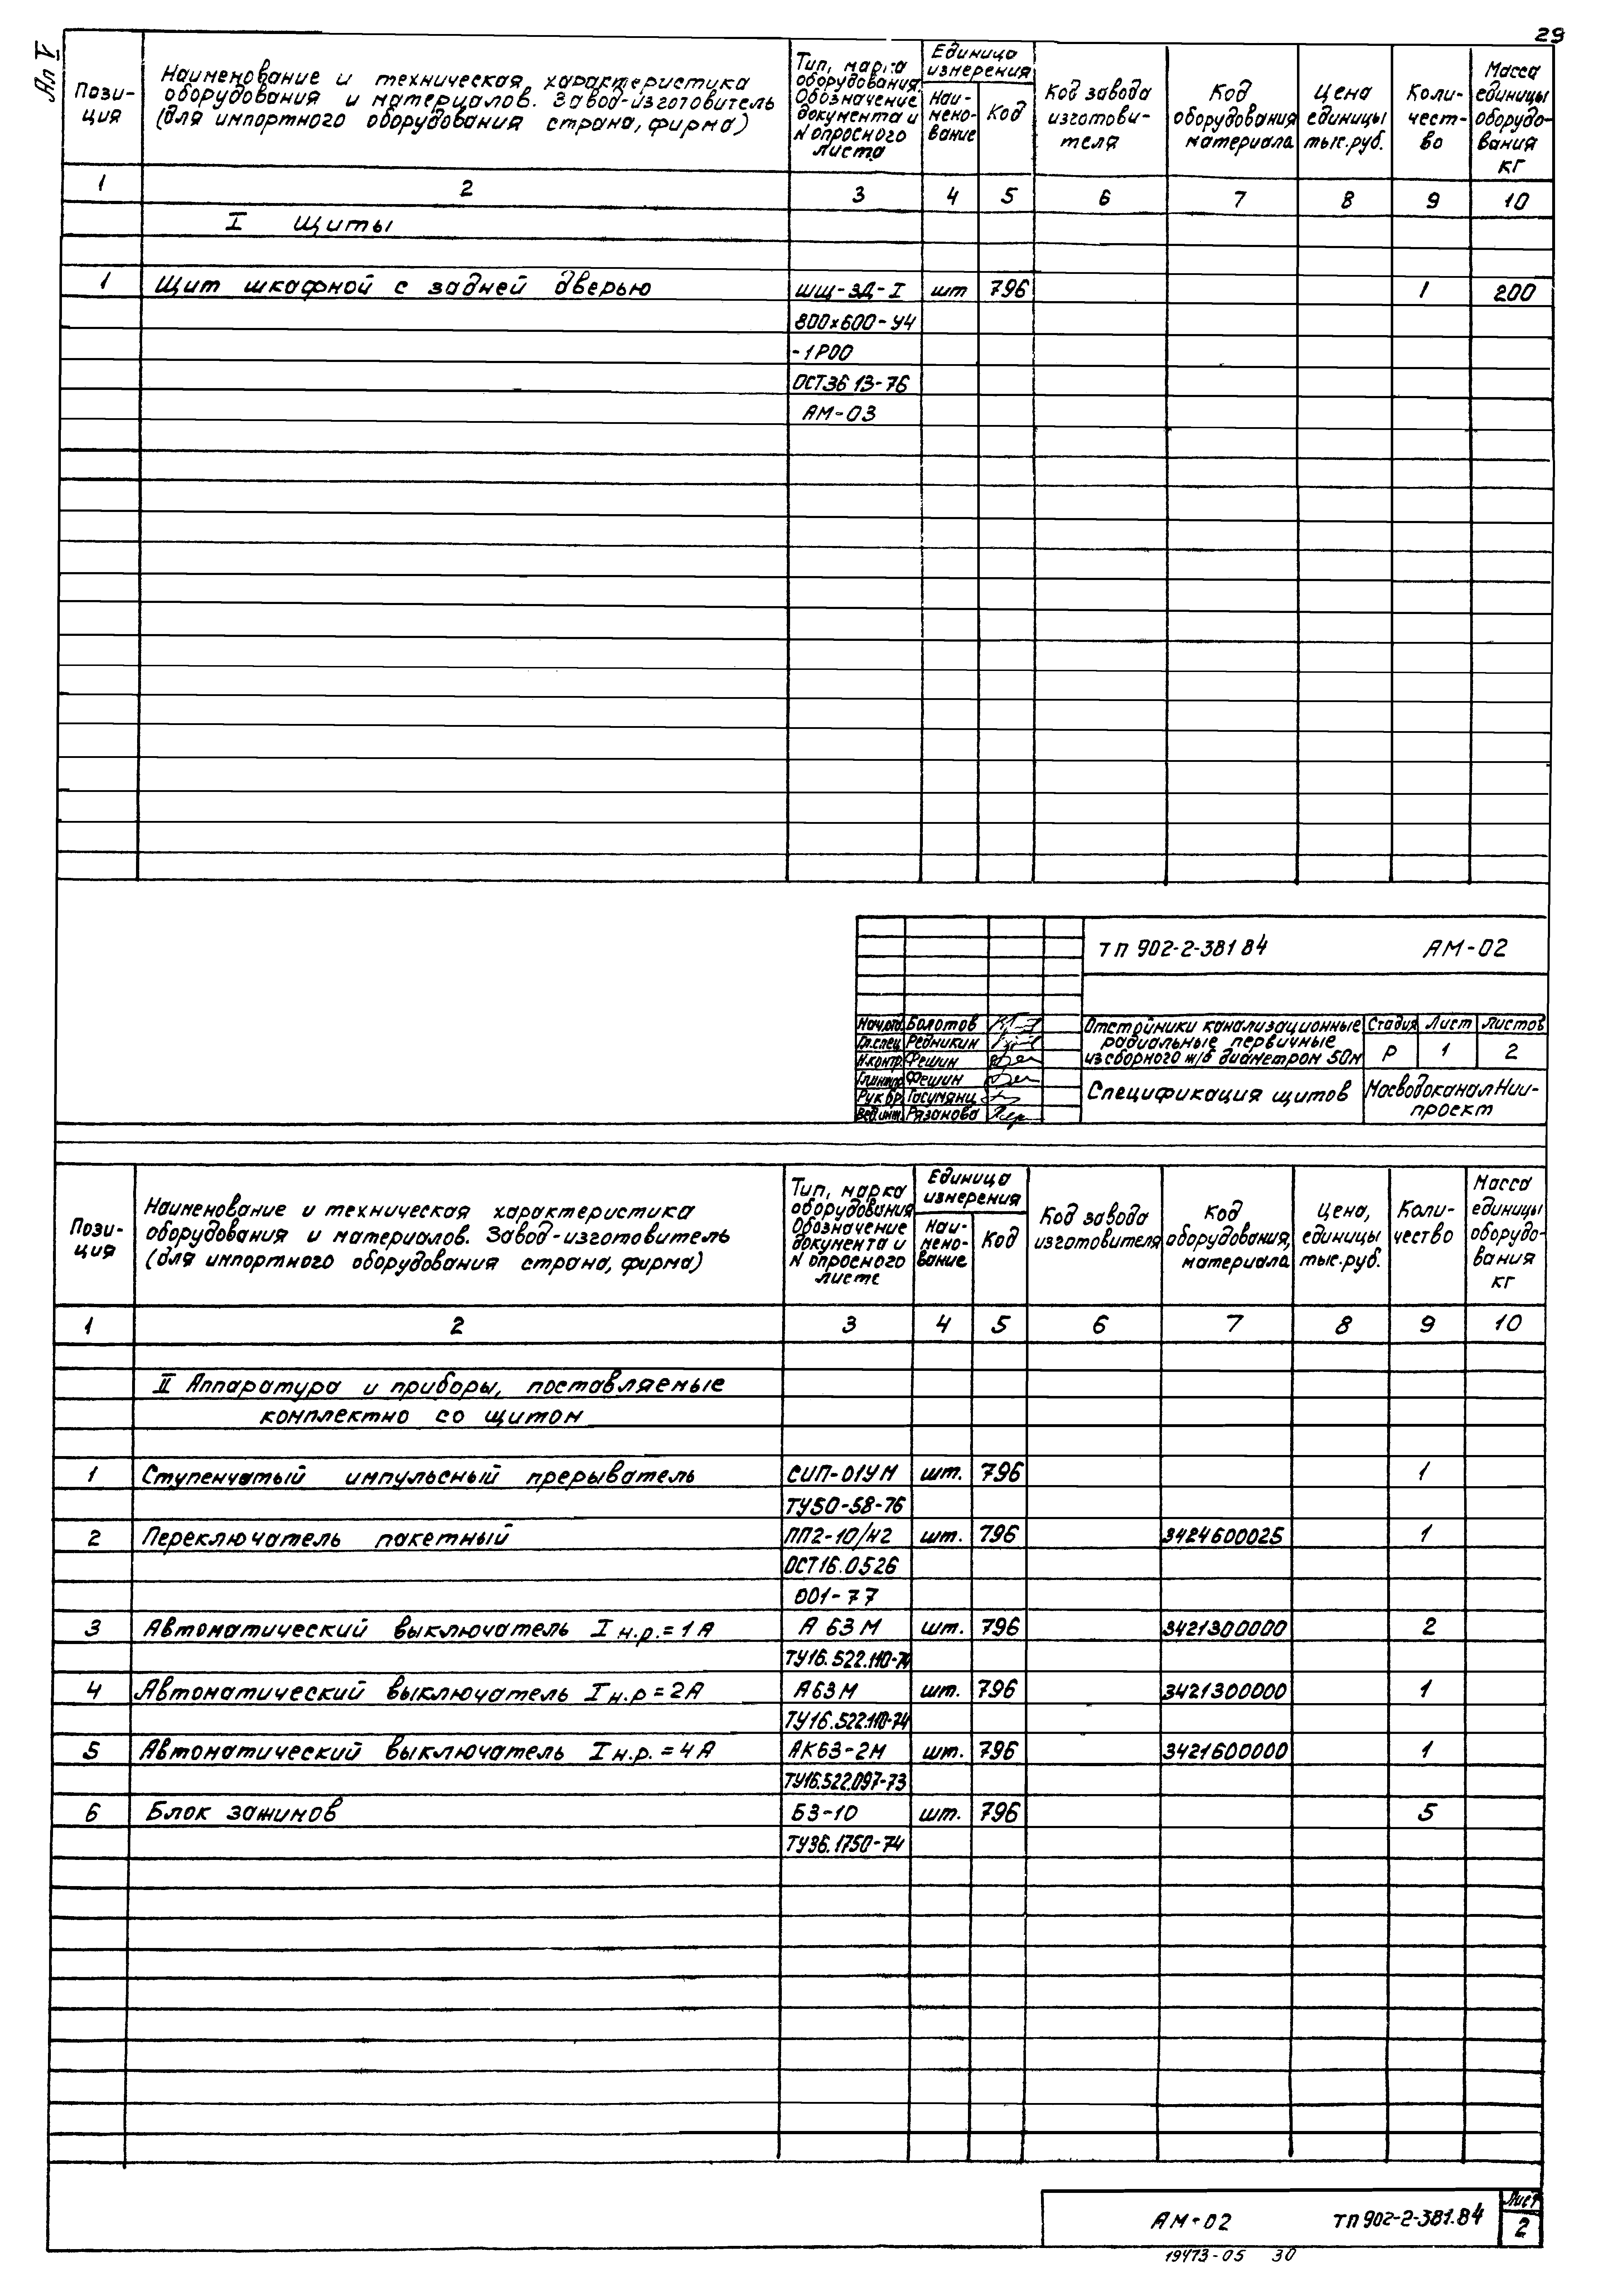 29
Ал V
Пози-
ция
Наименование и техническая характеристика
оборудования и материалов. Завод-изготовитель
(для импортного оборудования страна, фирма)
Тип, марка
оборудования
Обозначение
документа и
N опросного
листа
Единица
измерения
Наи-
мено-
вание
Код
Код завода
изготови-
теля
Код
оборудования
материала
Цена
единицы
тыс.руб.
Коли-
чест-
во
Масса
единицы
оборудо-
вания
кг
1 2 3 4 5 6 7 8 9 10
I Щиты
1 Щит шкафной с задней дверью ЩШ-ЗД-I шт 796 1 200
800х600-У4
-1Р00
ОСТ36 13-76
АМ-03
ТП 902-2-381 84 АМ-02
Нач.отд. Болотов
Гл.спец. Редникин
Н.контр. Фешин
Фешин
Рук.бр. Гасумянц
Вед.инж. Рязанова
Отстойники канализационные
радиальные первичные
из сборного ж/б диаметром 50м
Стадия Лист Листов
Р 1 2
Спецификация щитов
МосводоканалНИИ-
проект
Пози-
ция
Наименование и техническая характеристика
оборудования и материалов. Завод-изготовитель
(для импортного оборудования страна, фирма)
Тип, марка
оборудования
Обозначение
документа и
N опросного
листе
Единица
измерения
Наи-
мено-
вание
Код
Код завода
изготовителя
Код
оборудования,
материала
Цена,
единицы
тыс.руб.
Коли-
чество
Масса
единицы
оборудо-
вания
кг
1 2 3 4 5 6 7 8 9 10
II Аппаратура и приборы, поставляемые
комплектно со щитом
1 Ступенчатый импульсный прерыватель СИП-01УМ шт. 796 1
ТУ50-58-76
2 Переключатель пакетный ПП2-10/Н2 шт. 796 3424600025 1
ОСТ16.0526
001-77
3 Автоматический выключатель I н.р.=1А А 63 М шт. 796 3421300000 2
ТУ16.522.110-74
4 Автоматический выключатель I н.р=2А А63М шт. 796 3421300000 1
ТУ16.522.110-74
5 Автоматический выключатель I н.р.=4А АК63-2М шт. 796 3421600000 1
ТУ16.522.097-73
6 Блок зажимов БЗ-10 шт. 796 5
ТУ36.1750-74
АМ-02 ТП 902-2-381.84
Лист
2
19473-05 30